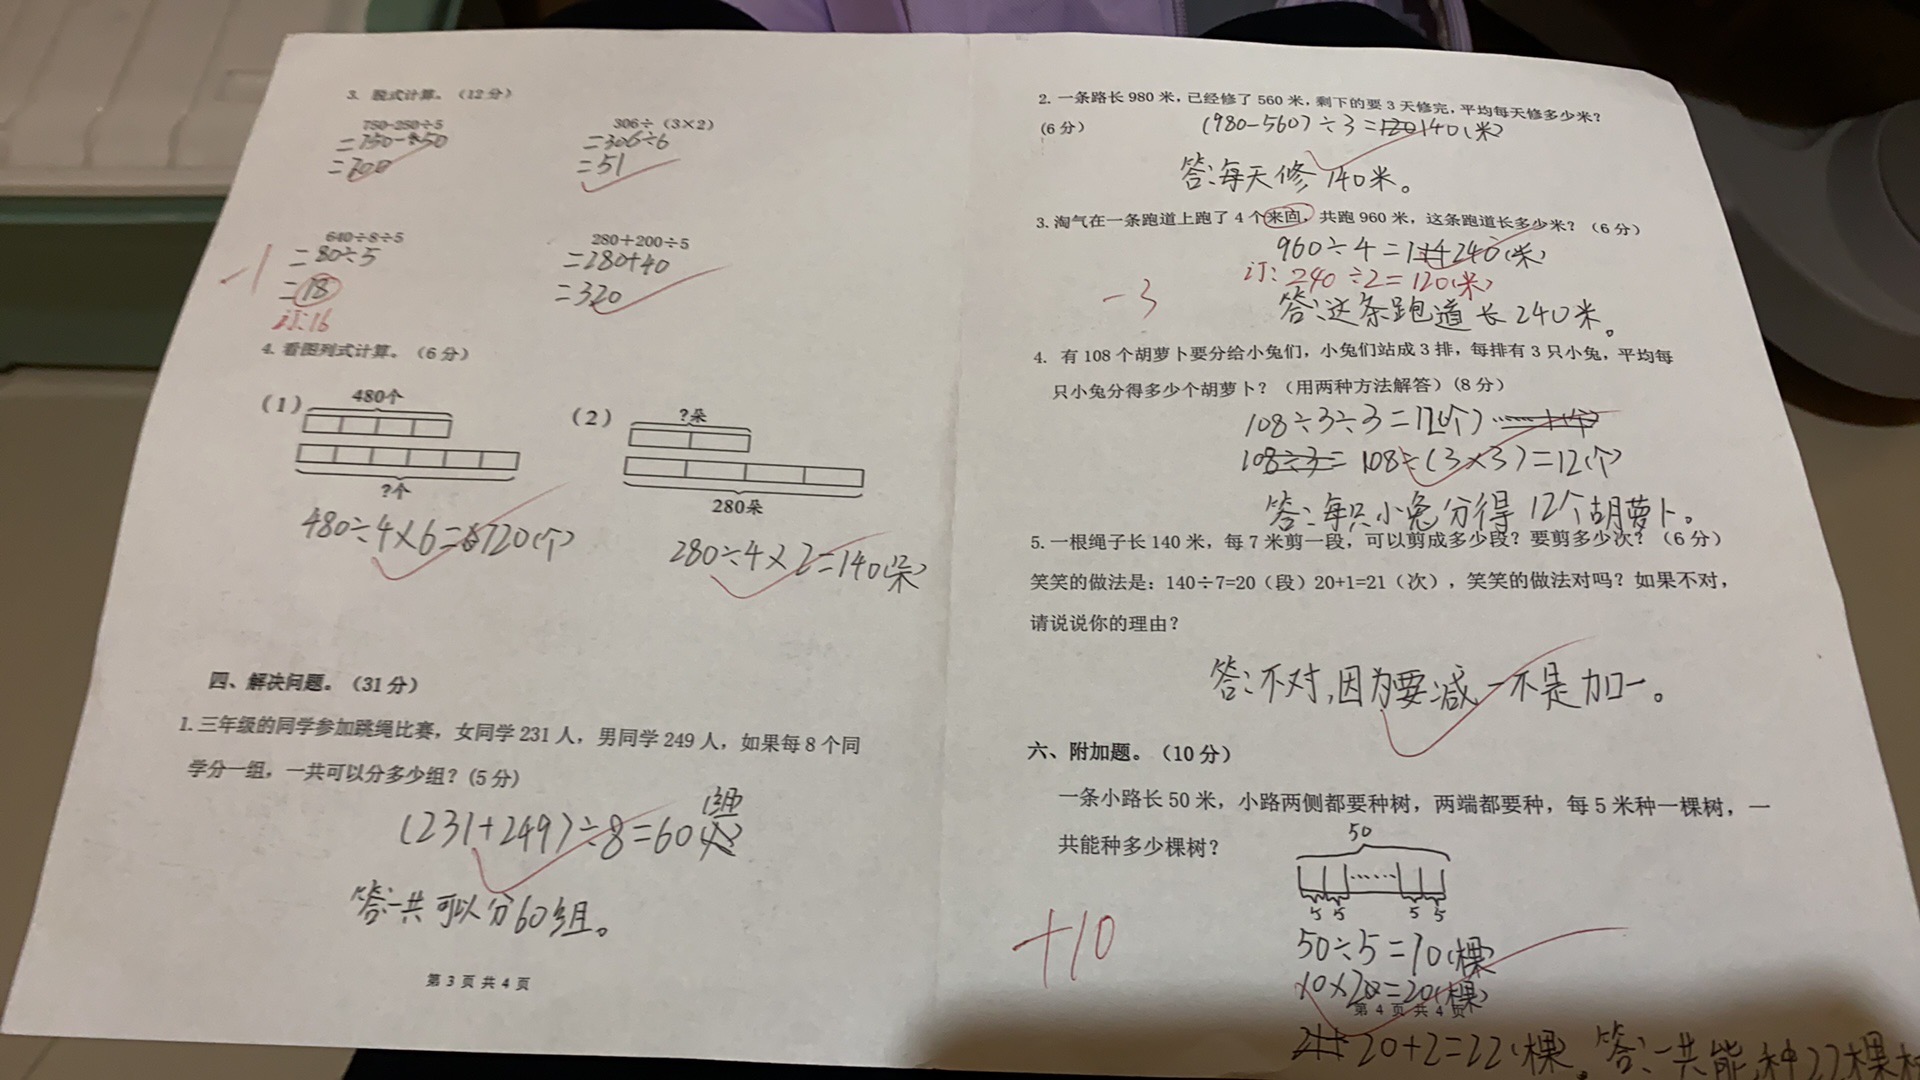 3. 脱式计算。（12分）
750-250÷5
=750-50
=700
306÷（3×2）
=306÷6
=51
640÷8÷5
=80÷5
=18
订:16
-1
280+200÷5
=280+40
=320
4. 看图列式计算。（6分）
（1）
480个
?个
480÷4×6=720(个)
（2）
?朵
280朵
280÷4×2=140(朵)
四、解决问题。（31分）
1. 三年级的同学参加跳绳比赛，女同学231人，男同学249人，如果每8个同
学分一组，一共可以分多少组？（5分）
(231+249)÷8=60(组)
答:一共可以分60组。
第 3 页 共 4 页
2. 一条路长980米，已经修了560米，剩下的要3天修完，平均每天修多少米？
（6分）
(980-560)÷3=140(米)
答:每天修140米。
3. 淘气在一条跑道上跑了4个来回，共跑960米，这条跑道长多少米？（6分）
960÷4=240(米)
订: 240÷2=120(米)
-3
答:这条跑道长240米。
4. 有108个胡萝卜要分给小兔们，小兔们站成3排，每排有3只小兔，平均每
只小兔分得多少个胡萝卜？（用两种方法解答）（8分）
108÷3÷3=12(个)
108÷3= 108÷(3×3)=12(个)
答:每只小兔分得12个胡萝卜。
5. 一根绳子长140米，每7米剪一段，可以剪成多少段？要剪多少次？（6分）
笑笑的做法是：140÷7=20（段）20+1=21（次），笑笑的做法对吗？如果不对，
请说说你的理由？
答:不对,因为要减一不是加一。
六、附加题。（10分）
一条小路长50米，小路两侧都要种树，两端都要种，每5米种一棵树，一
共能种多少棵树？
50
······
5 5 5 5
+10
50÷5=10(棵)
10×2=20(棵)
第 4 页 共 4 页
20+2=22(棵)。答:一共能种22棵